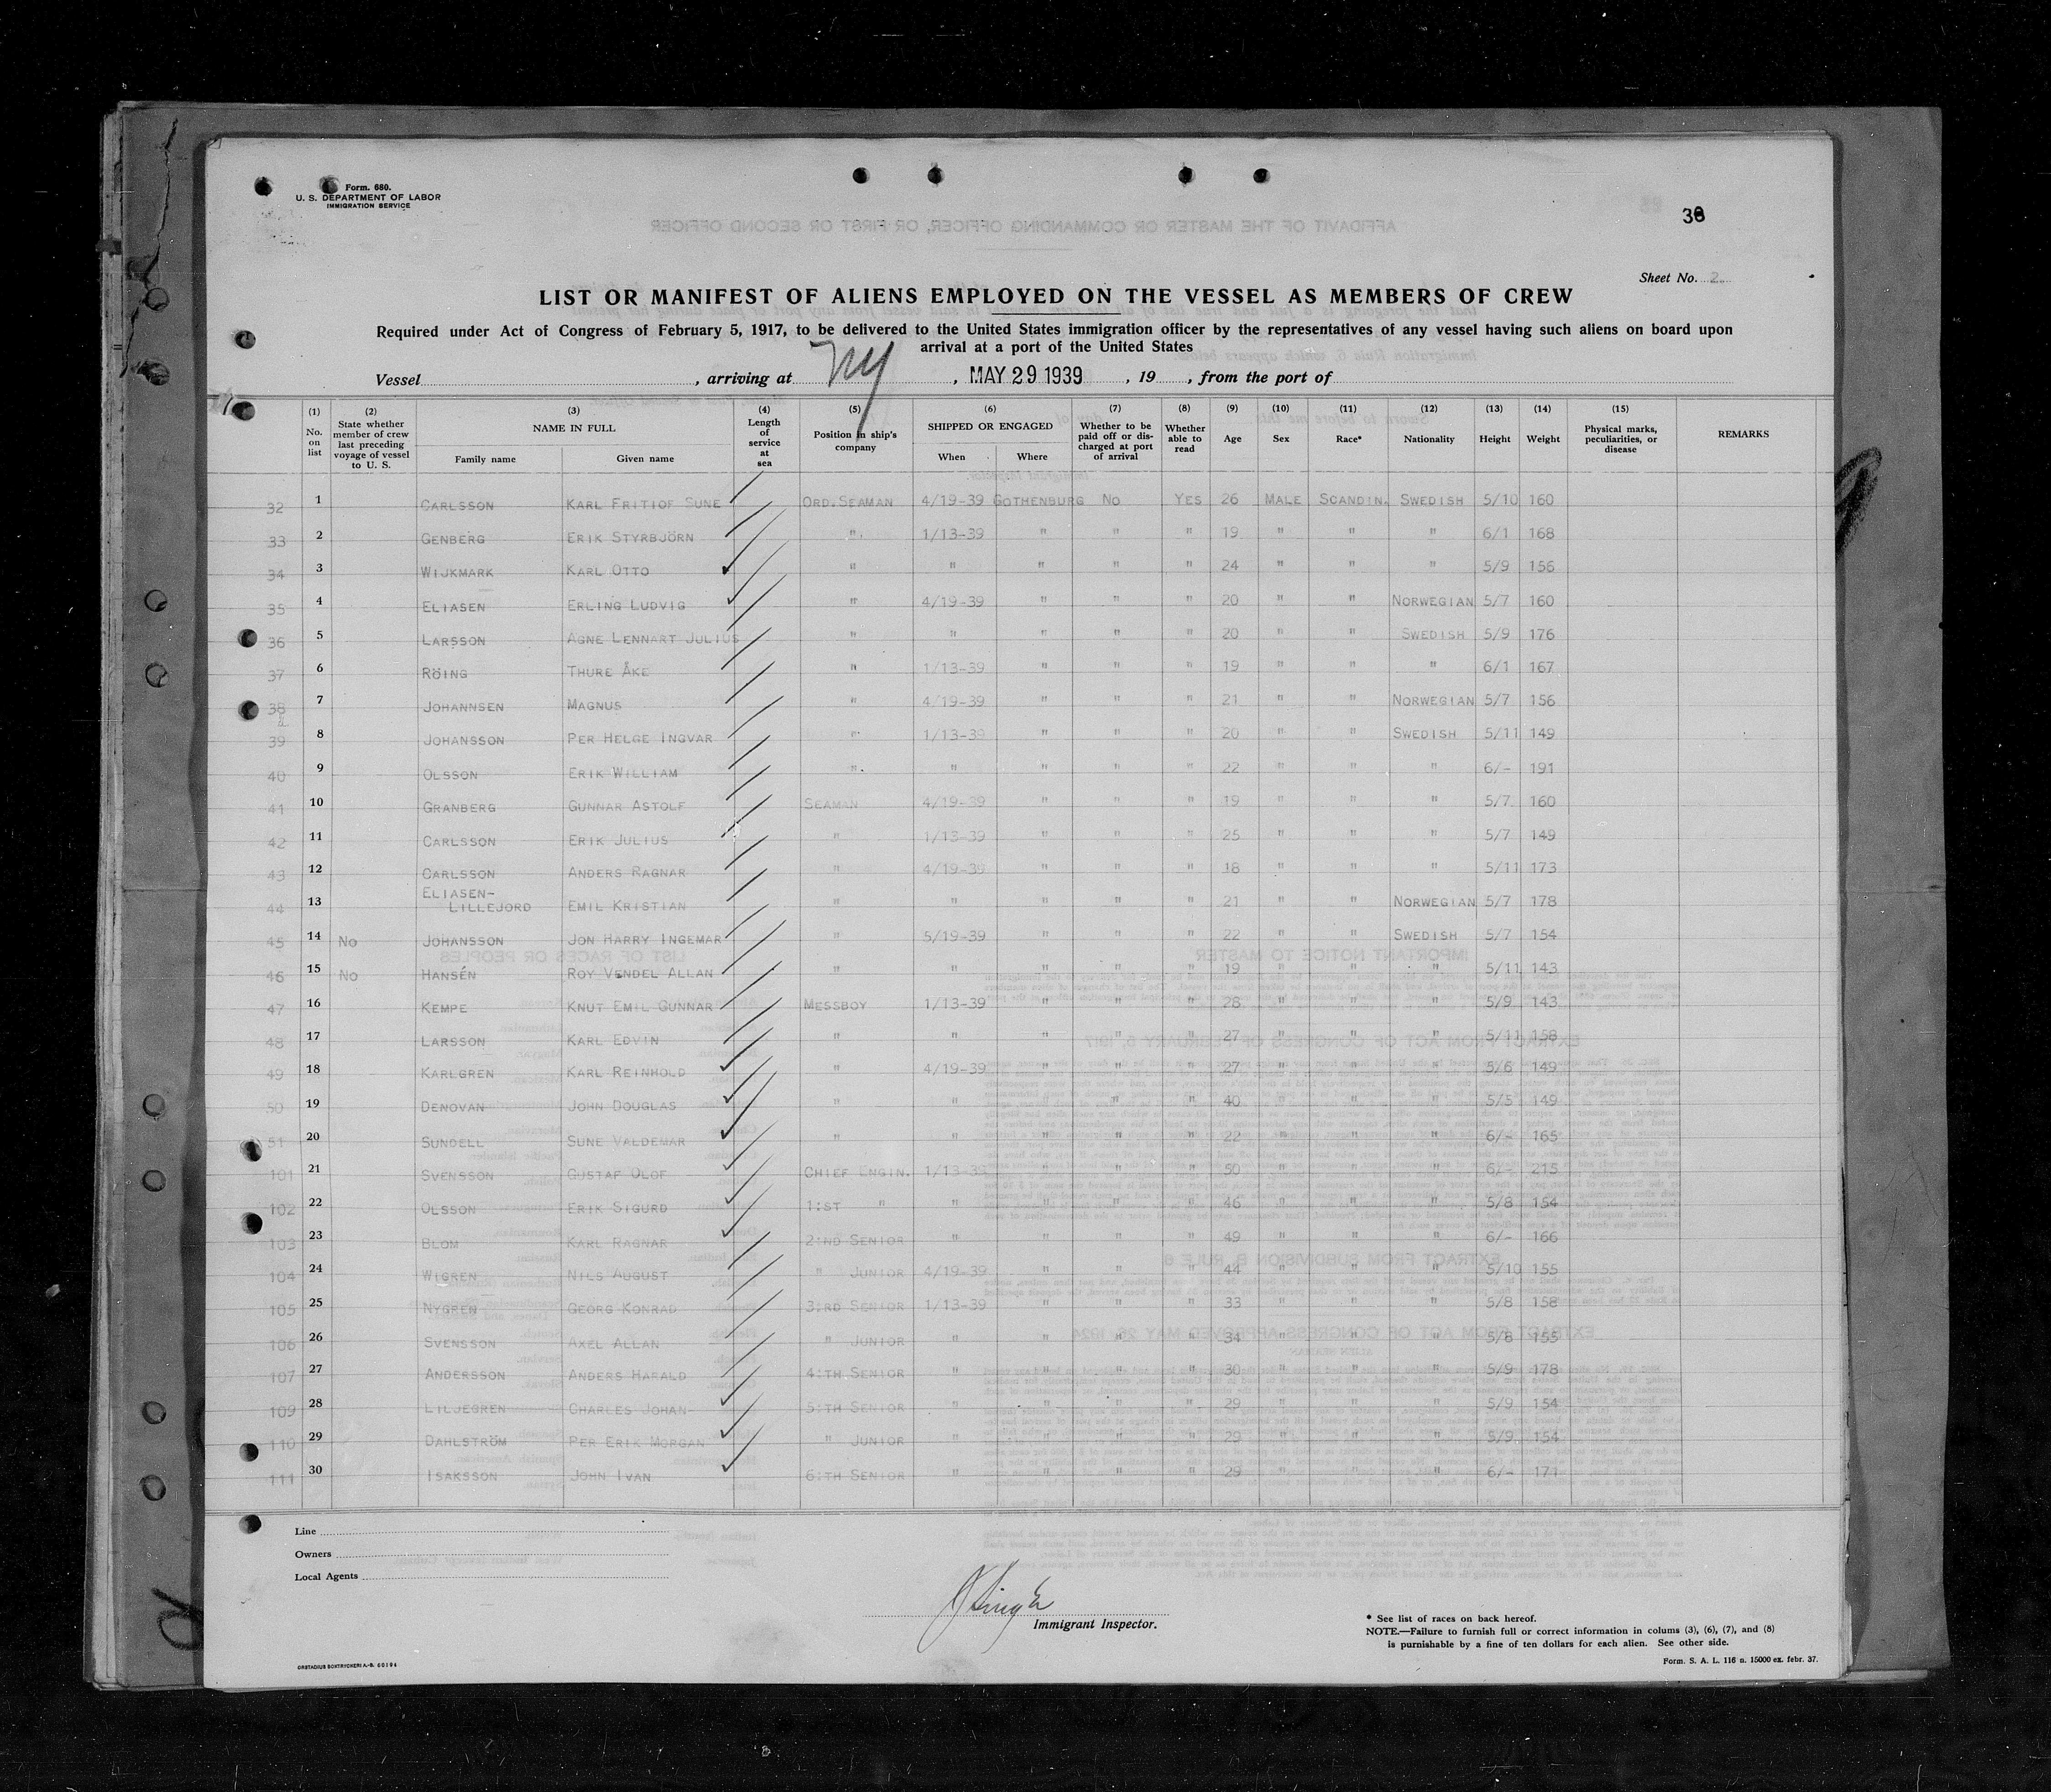 Form. 680.
U. S. DEPARTMENT OF LABOR
IMMIGRATION SERVICE
38
Sheet No. 2
LIST OR MANIFEST OF ALIENS EMPLOYED ON THE VESSEL AS MEMBERS OF CREW
Required under Act of Congress of February 5, 1917, to be delivered to the United States immigration officer by the representatives of any vessel having such aliens on board upon
arrival at a port of the United States
Vessel , arriving at NY , MAY 29 1939 , 19 , from the port of
(1) No. on list (2) State whether member of crew last preceding voyage of vessel to U. S. (3) NAME IN FULL Family name Given name (4) Length of service at sea (5) Position in ship's company (6) SHIPPED OR ENGAGED When Where (7) Whether to be paid off or discharged at port of arrival (8) Whether able to read (9) Age (10) Sex (11) Race* (12) Nationality (13) Height (14) Weight (15) Physical marks, peculiarities, or disease REMARKS
32 1 CARLSSON KARL FRITIOF SUNE ORD.SEAMAN 4/19-39 GOTHENBURG NO YES 26 MALE SCANDIN. SWEDISH 5/10 160
33 2 GENBERG ERIK STYRBJÖRN " 1/13-39 " " " 19 " " " 6/1 168
34 3 WIJKMARK KARL OTTO " " " " " 24 " " " 5/9 156
35 4 ELIASEN ERLING LUDVIG " 4/19-39 " " " 20 " " NORWEGIAN 5/7 160
36 5 LARSSON AGNE LENNART JULIUS " " " " " 20 " " SWEDISH 5/9 176
37 6 RÖING THURE ÅKE " 1/13-39 " " " 19 " " " 6/1 167
38 7 JOHANNSEN MAGNUS " 4/19-39 " " " 21 " " NORWEGIAN 5/7 156
39 8 JOHANSSON PER HELGE INGVAR " 1/13-39 " " " 20 " " SWEDISH 5/11 149
40 9 OLSSON ERIK WILLIAM " " " " " 22 " " " 6/- 191
41 10 GRANBERG GUNNAR ASTOLF SEAMAN 4/19-39 " " " 19 " " " 5/7 160
42 11 CARLSSON ERIK JULIUS " 1/13-39 " " " 25 " " " 5/7 149
43 12 CARLSSON ANDERS RAGNAR " 4/19-39 " " " 18 " " " 5/11 173
44 13 ELIASEN-LILLEJORD EMIL KRISTIAN " " " " " 21 " " NORWEGIAN 5/7 178
45 14 NO JOHANSSON JON HARRY INGEMAR " 5/19-39 " " " 22 " " SWEDISH 5/7 154
46 15 NO HANSÉN ROY VENDEL ALLAN " " " " " 19 " " " 5/11 143
47 16 KEMPE KNUT EMIL GUNNAR MESSBOY 1/13-39 " " " 28 " " " 5/9 143
48 17 LARSSON KARL EDVIN " " " " " 27 " " " 5/11 158
49 18 KARLGREN KARL REINHOLD " 4/19-39 " " " 27 " " " 5/6 149
50 19 DENOVAN JOHN DOUGLAS " " " " " 40 " " " 5/5 149
51 20 SUNDELL SUNE VALDEMAR " " " " " 22 " " " 6/- 165
101 21 SVENSSON GUSTAF OLOF CHIEF ENGIN. 1/13-39 " " " 50 " " " 6/- 215
102 22 OLSSON ERIK SIGURD 1:ST " " " " " 46 " " " 5/8 154
103 23 BLOM KARL RAGNAR 2:ND SENIOR " " " " 49 " " " 6/- 166
104 24 WIGREN NILS AUGUST " JUNIOR 4/19-39 " " " 44 " " " 5/10 155
105 25 NYGREN GEORG KONRAD 3:RD SENIOR 1/13-39 " " " 33 " " " 5/8 158
106 26 SVENSSON AXEL ALLAN " JUNIOR " " " " 34 " " " 5/8 155
107 27 ANDERSSON ANDERS HARALD 4:TH SENIOR " " " " 30 " " " 5/9 178
109 28 LILJEGREN CHARLES JOHAN 5:TH SENIOR " " " " 29 " " " 5/9 154
110 29 DAHLSTRÖM PER ERIK MORGAN " JUNIOR " " " " 29 " " " 5/9 154
111 30 ISAKSSON JOHN IVAN 6:TH SENIOR " " " " 29 " " " 6/- 171
Line
Owners
Local Agents
Immigrant Inspector.
* See list of races on back hereof.
NOTE.—Failure to furnish full or correct information in colums (3), (6), (7), and (8)
is purnishable by a fine of ten dollars for each alien. See other side.
ORSTADIUS BOKTRYCKERI A.-B. 60194
Form. S. A. L. 116 n. 15000 ex. febr. 37.